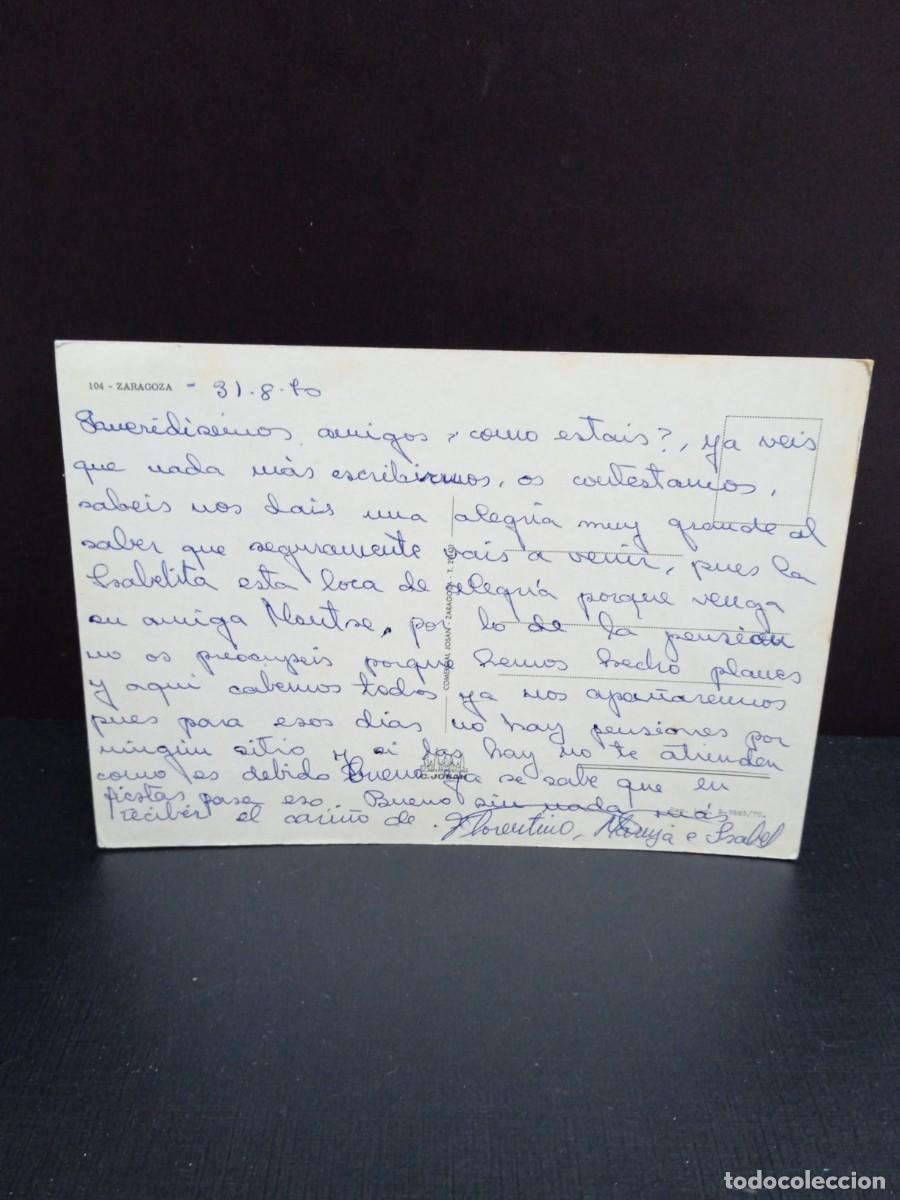 104 - ZARAGOZA - 31-8-70
amigos, como estais?, ya veis
que nada más escribirnos, os contestamos,
sabeis nos dais una alegría muy grande al
saber que seguramente vais a venir, pues la
Isabelita esta loca de alegría porque venga
su amiga Montse, por lo de la pensión
no os preocupeis porque hemos hecho planes
y aqui cabemos todos ya nos apañaremos
pues para esos dias no hay pensiones por
ningún sitio y si las hay no te atienden
como es debido Bueno ya se sabe que en
fiestas pasa eso. Bueno sin nada más
recibér el cariño de Florentino, Maruja e Isabel
COMERCIAL JOSAN - ZARAGOZA - T.
C. JOSAN
todocoleccion